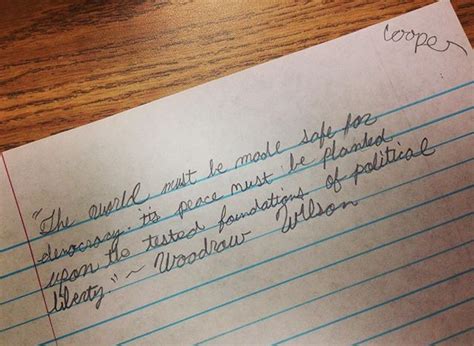 Cooper
"The world must be made safe for
democracy. its peace must be planted
upon the tested foundations of political
liberty." ~ Woodraw Wilson